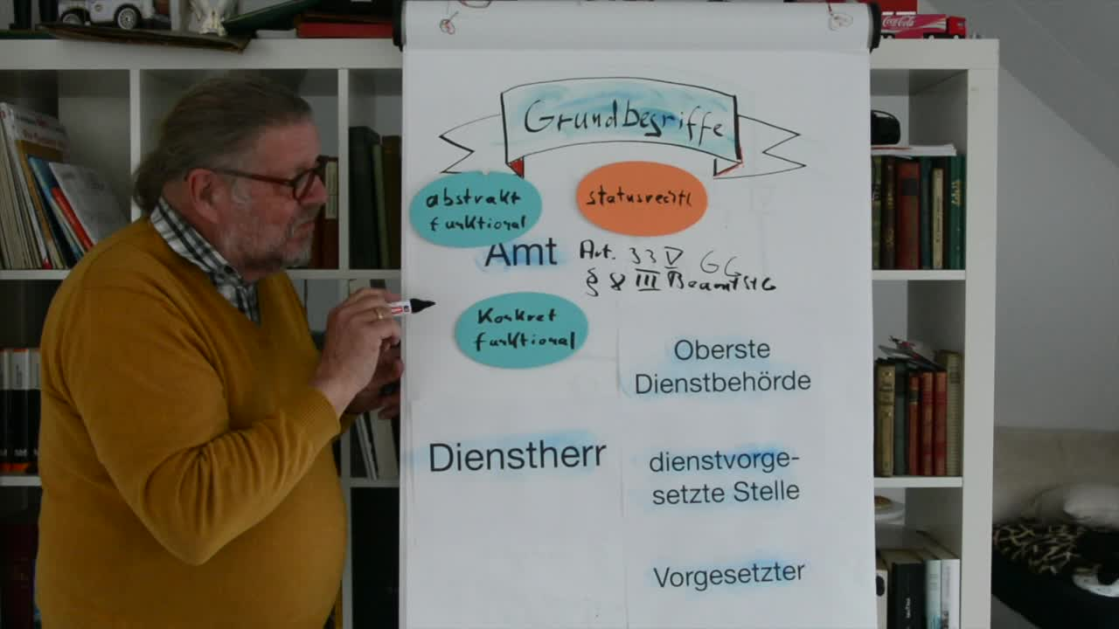 Coca-Cola
Grundbegriffe
abstrakt
funktional
statusrechtl
Amt
Art. 33 V GG
§ 8 III BeamtStG
Konkret
funktional
Oberste
Dienstbehörde
Dienstherr
dienstvorge-
setzte Stelle
Vorgesetzter